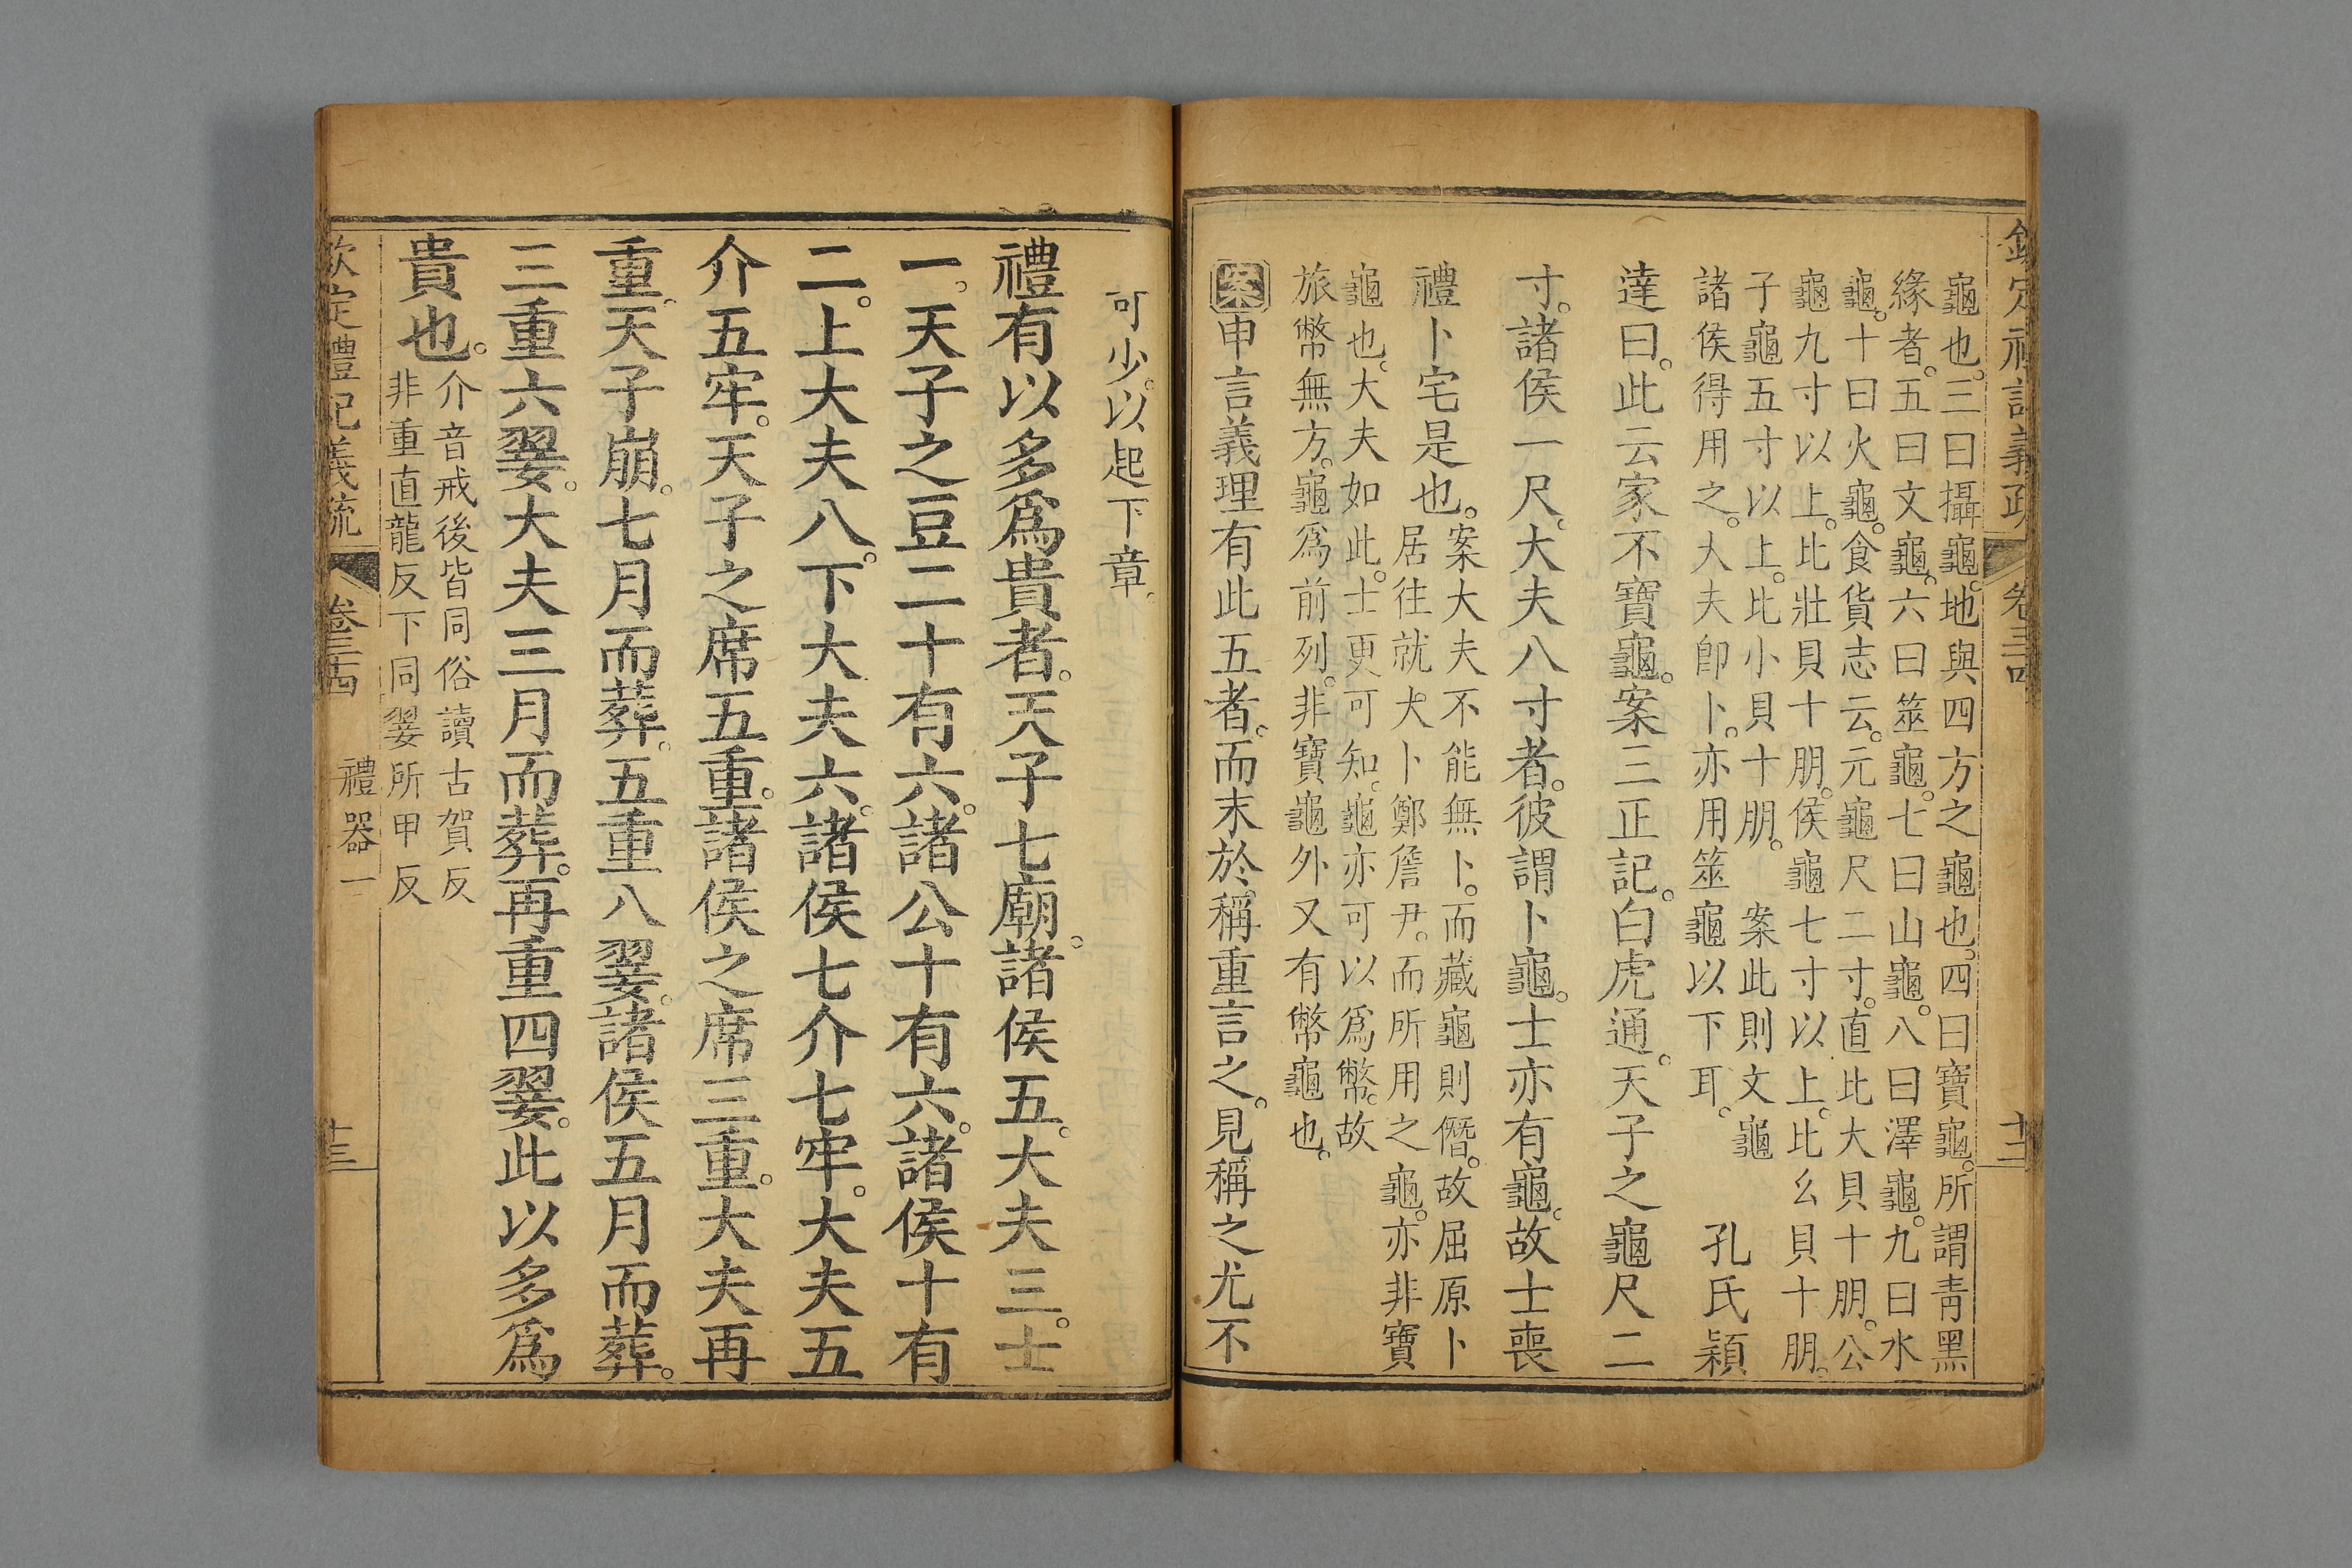 欽定禮記義疏 卷三十四 十三
龜也。三曰攝龜。地與四方之龜也。四曰寶龜。所謂青黑
緣者。五曰文龜。六曰筮龜。七曰山龜。八曰澤龜。九曰水
龜。十曰火龜。食貨志云。元龜尺二寸。直此大貝十朋。公
龜九寸以上。比壯貝十朋。侯龜七寸以上。此幺貝十朋。
子龜五寸以上。比小貝十朋。 案此則文龜
諸侯得用之。大夫卽卜。亦用筮龜以下耳。
孔氏穎
達曰。此云家不寶龜。案三正記。白虎通。天子之龜尺二
寸。諸侯一尺。大夫八寸者。彼謂卜龜。士亦有龜。故士喪
禮卜宅是也。
案大夫不能無卜。而藏龜則僭。故屈原卜
居往就犬卜鄭詹尹。而所用之龜。亦非寶
龜也。大夫如此。士更可知。龜亦可以爲幣。故
旅幣無方。龜爲前列。非寶龜外又有幣龜也。
案申言義理有此五者。而末於稱重言之。見稱之尤不
可少。以起下章。
禮有以多爲貴者。天子七廟。諸侯五。大夫三。士
一。天子之豆二十有六。諸公十有六。諸侯十有
二。上大夫八。下大夫六。諸侯七介七牢。大夫五
介五牢。天子之席五重。諸侯之席三重。大夫再
重。天子崩。七月而葬。五重八翣。諸侯五月而葬。
三重六翣。大夫三月而葬。再重四翣。此以多爲
貴也。
介音戒後皆同俗讀古賀反
非重直龍反下同翣所甲反
欽定禮記義疏 卷三十四 禮器一 十三